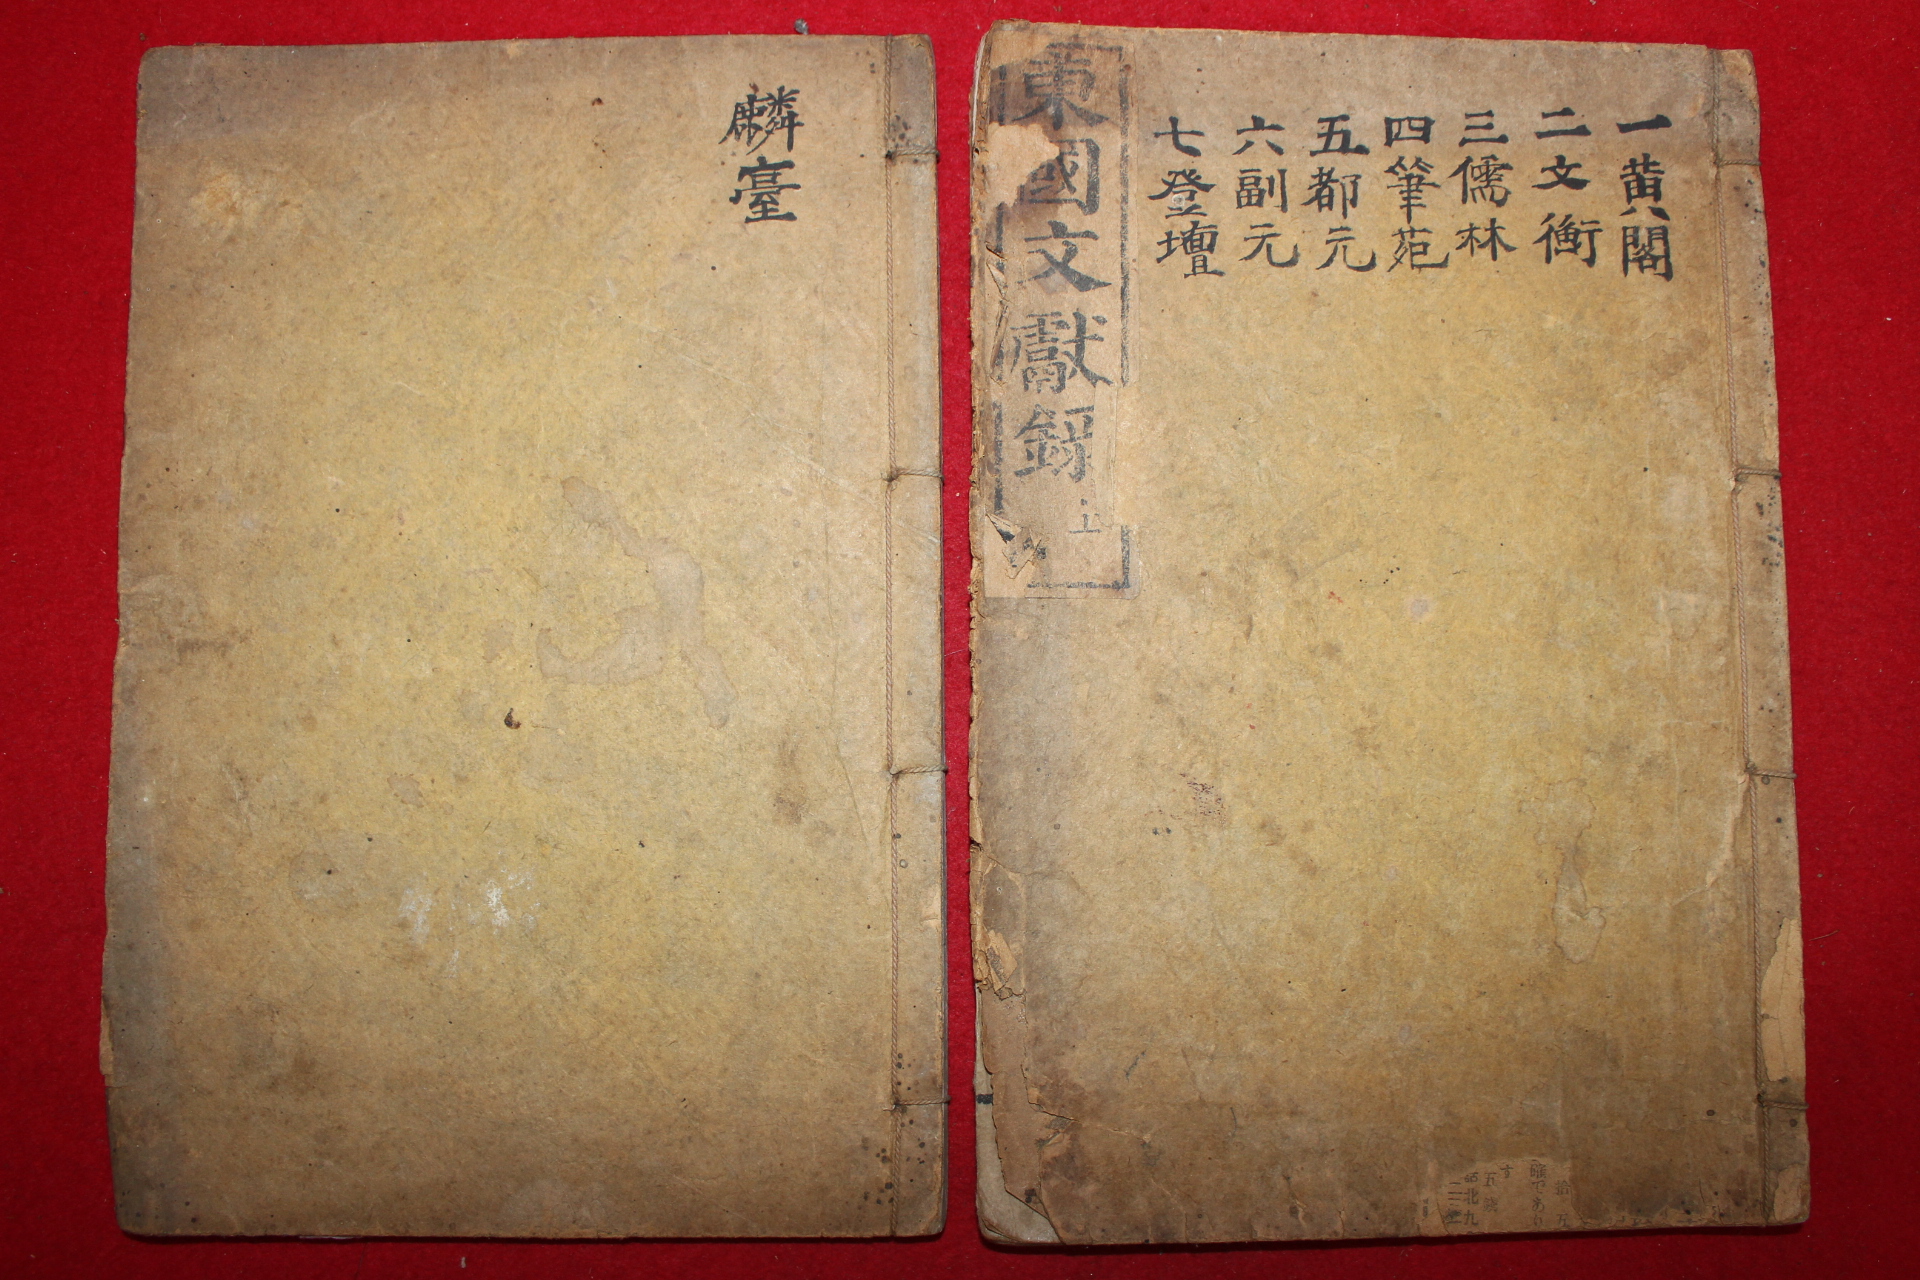 一黃閣
二文衡
三儒林
四筆苑
五都元
六副元
七登壇
東國文獻錄
麟臺